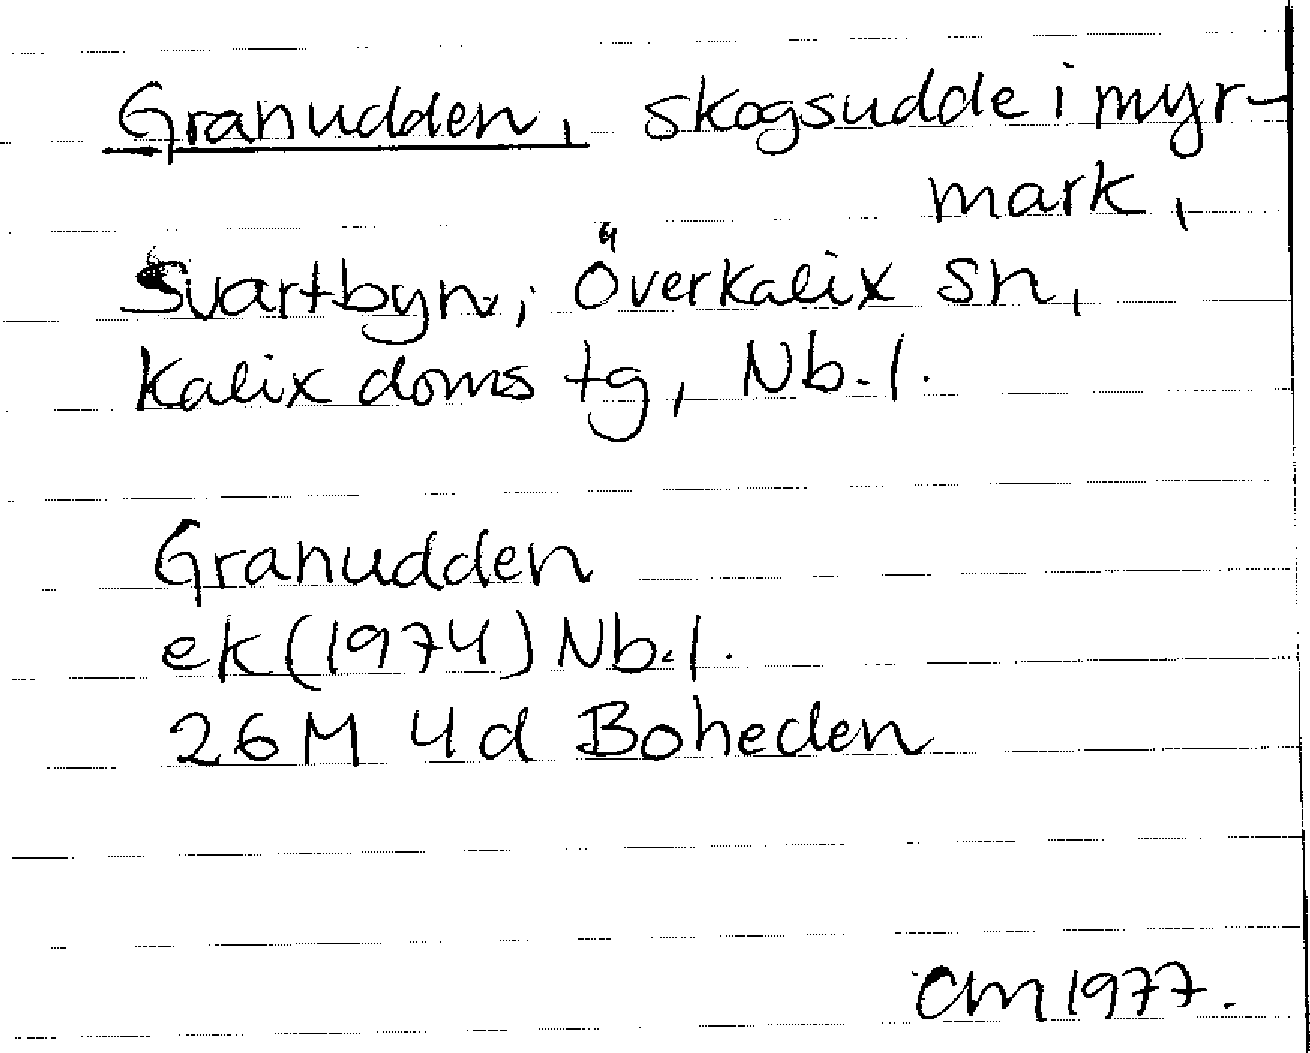 Granudden, skogsudde i myr-
mark,
Svartbyn, Överkalix sn,
Kalix doms tg, Nb.l.
Granudden
ek (1974) Nb.l.
26M 4d Boheden
CM 1977.